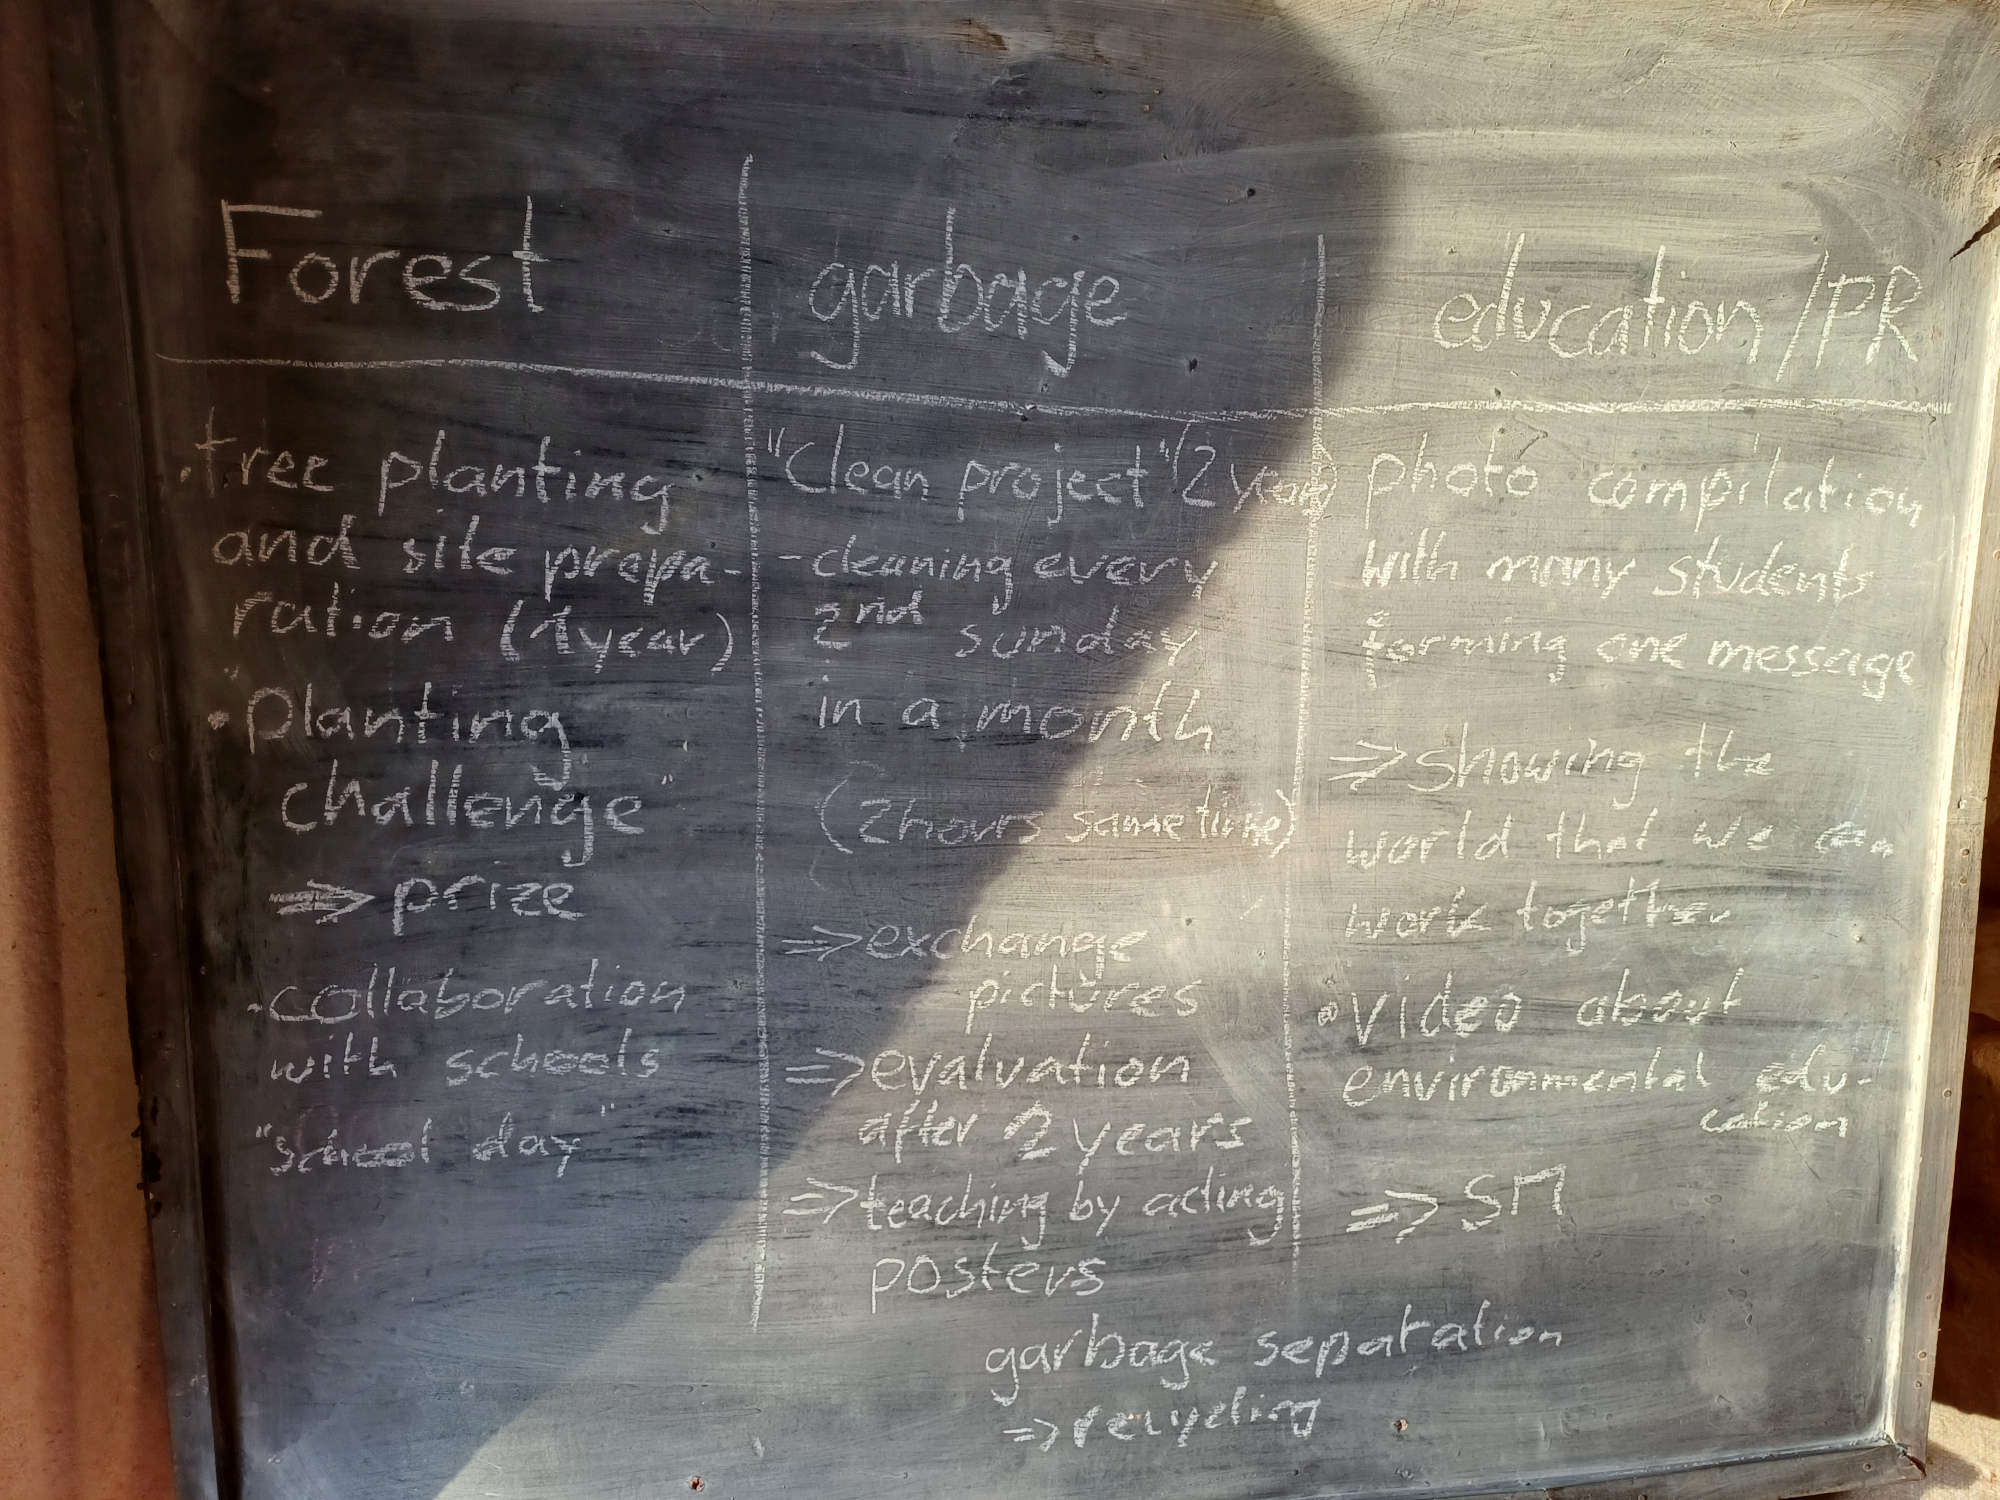 Forest
• tree planting
and site prepa-
ration (1 year)
• "Planting
challenge"
=> prize
• collaboration
with schools
"school day"
garbage
"Clean project" (2 years)
- cleaning every
2nd sunday
in a month
(2 hours same time)
=> exchange
pictures
=> evaluation
after 2 years
=> teaching by acting
posters
garbage separation
=> recycling
education/PR
photo compilation
with many students
forming one message
=> showing the
world that we can
work together
• video about
environmental edu-
cation
=> SM